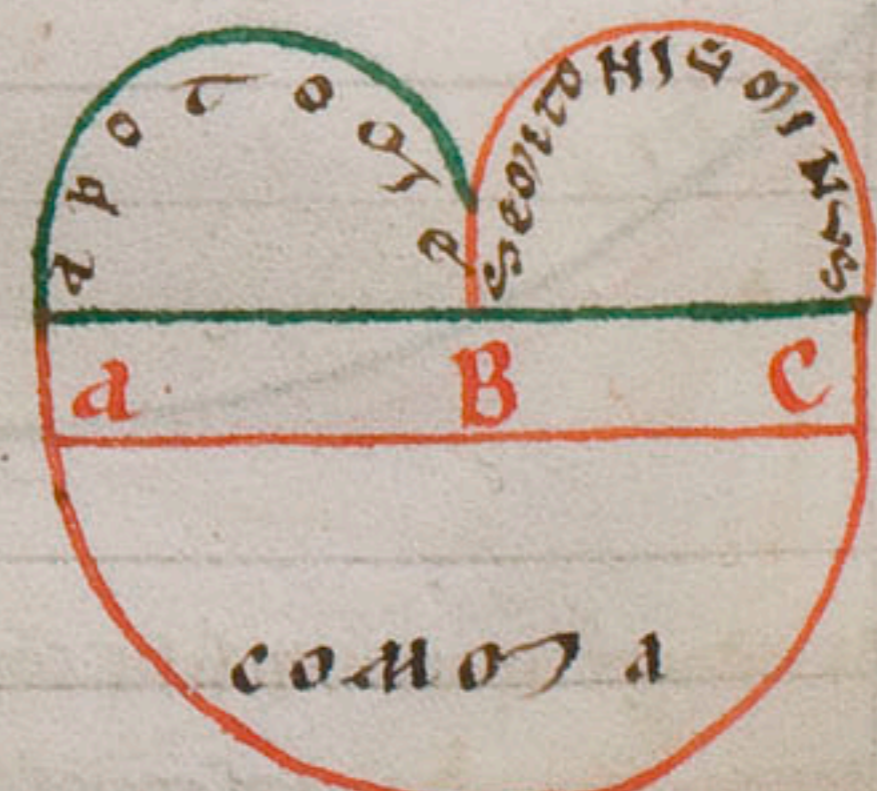 apotome
SemitoNIum mINus
a B C
comma